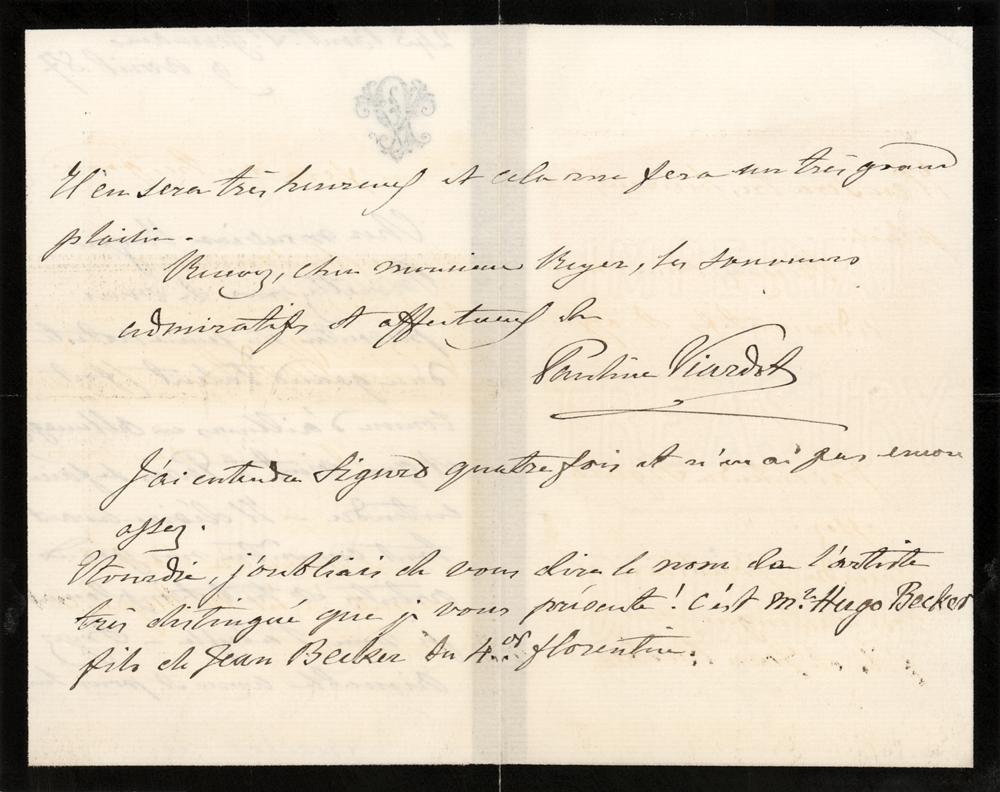 Il en sera très heureux et cela me fera un très grand
plaisir.
Recevez, cher monsieur Reyer, les souvenirs
admiratifs et affectueux de
Pauline Viardot
J'ai entendu Sigurd quatre fois et n'en ai pas encore
assez.
Etourdie, j'oubliais de vous dire le nom de l'artiste
très distingué que je vous présente! c'est Mr Hugo Becker
fils de Jean Becker du 4.or florentin.